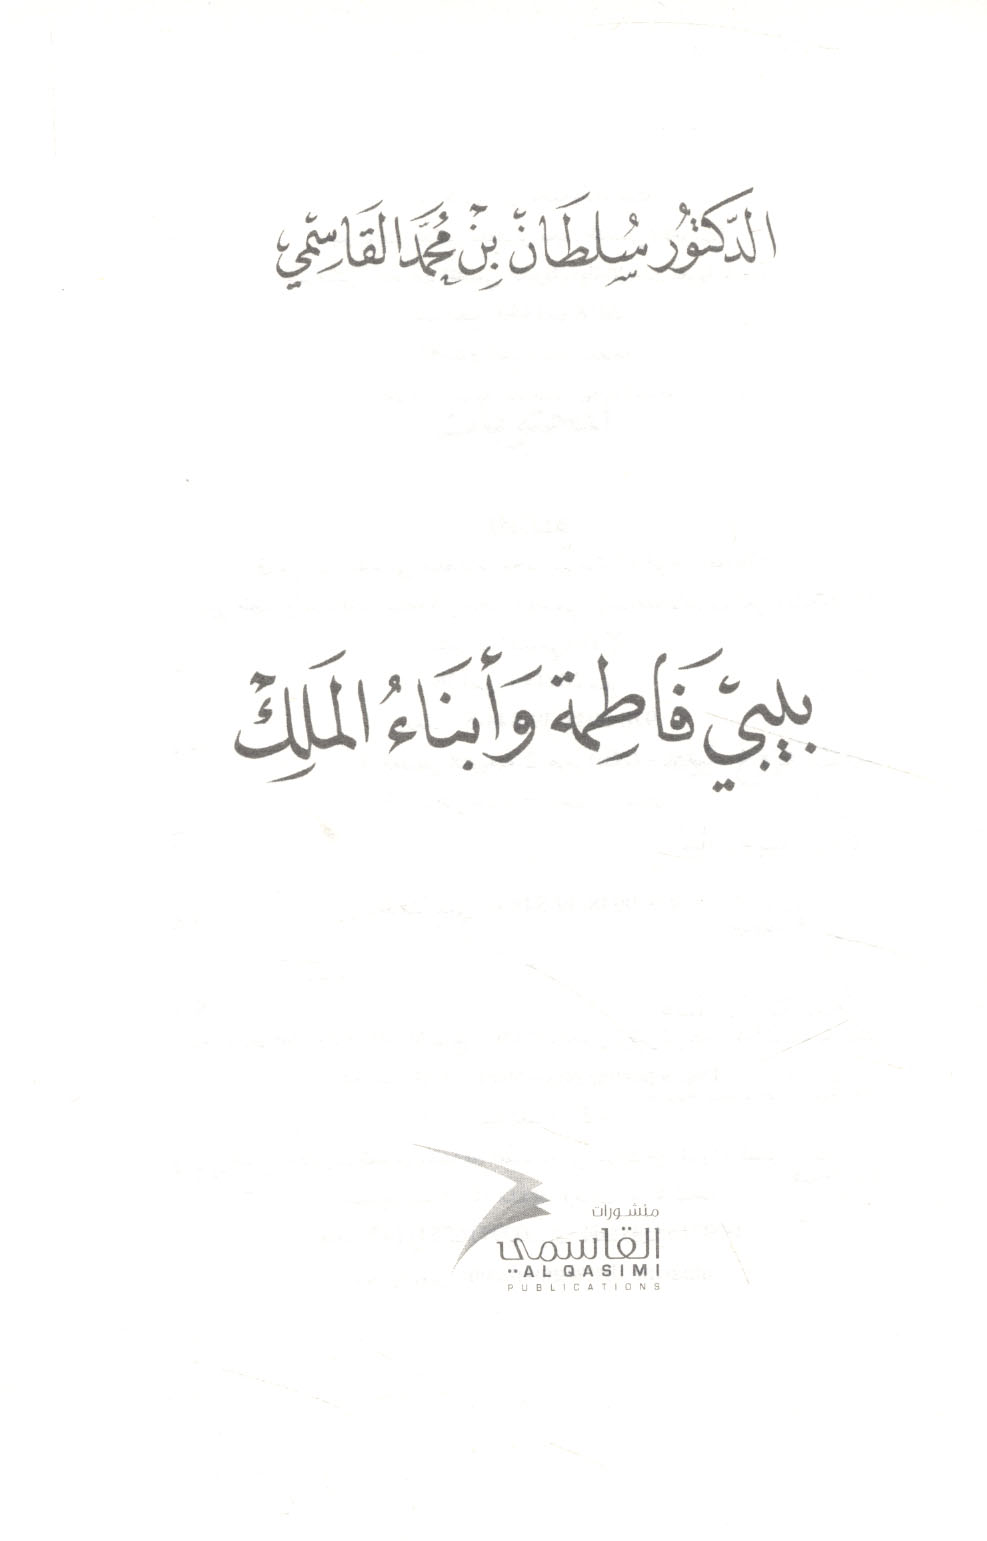 الدكتور سلطان بن محمد القاسمي
بيبي فاطمة وأبناء الملك
منشورات
القاسمي
AL QASIMI
PUBLICATIONS